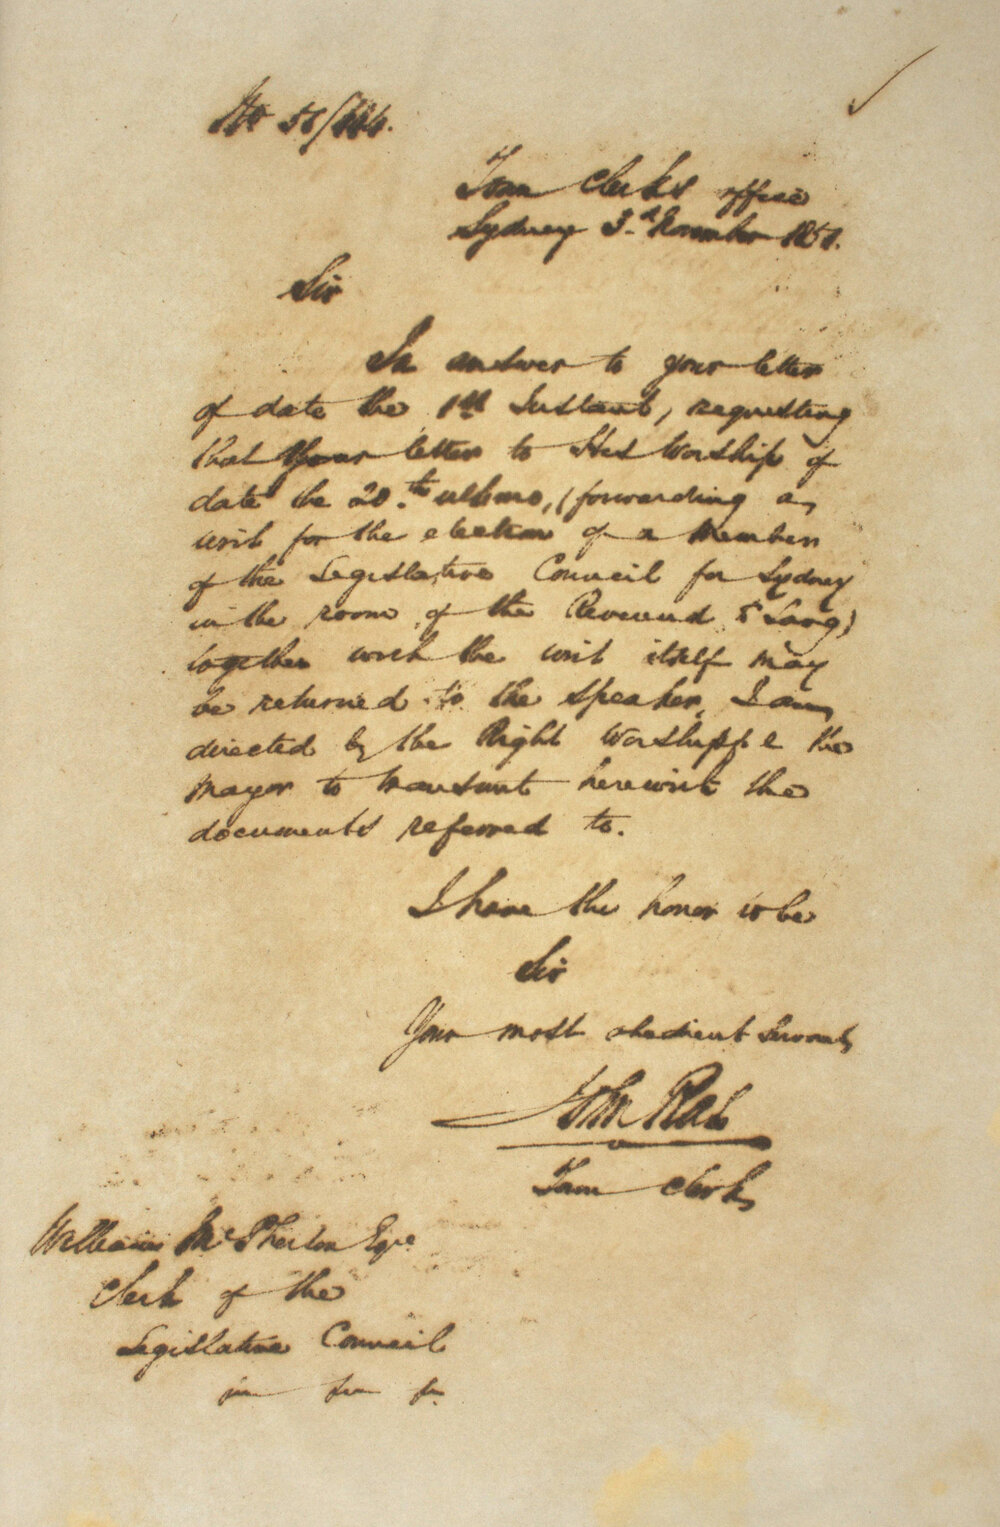 No 51/164.
Town Clerks office
Sydney 3.d November 1851.
Sir
In answer to your letter
of date the 1st Instant, requesting
that your letter to His Worship of
date the 20.th ultimo, (forwarding a
writ for the election of a Member
of the Legislative Council for Sydney
in the room of the Reverend Dr Lang)
together with the writ itself may
be returned to the Speaker, I am
directed by the Right Worshipful the
Mayor to transmit herewith the
documents referred to.
I have the honor to be
Sir
Your most obedient Servant
John Rae
Town Clerk
William McPherson Esqre
Clerk of the
Legislative Council